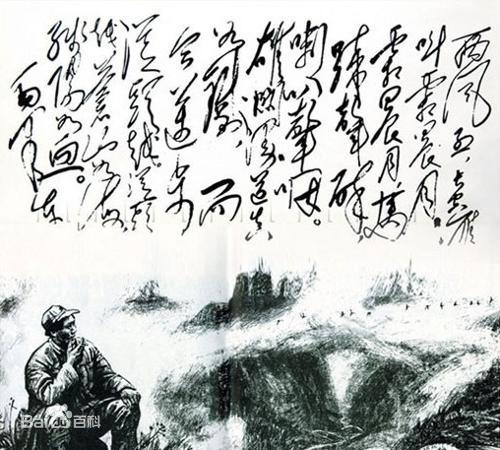 西风烈，长空雁
叫霜晨月。
霜晨月，马
蹄声碎，
喇叭声咽。
雄关漫道真
如铁，而
今迈步
从头越。从头
越，苍山如海，
残阳如血。
Bai du 百科